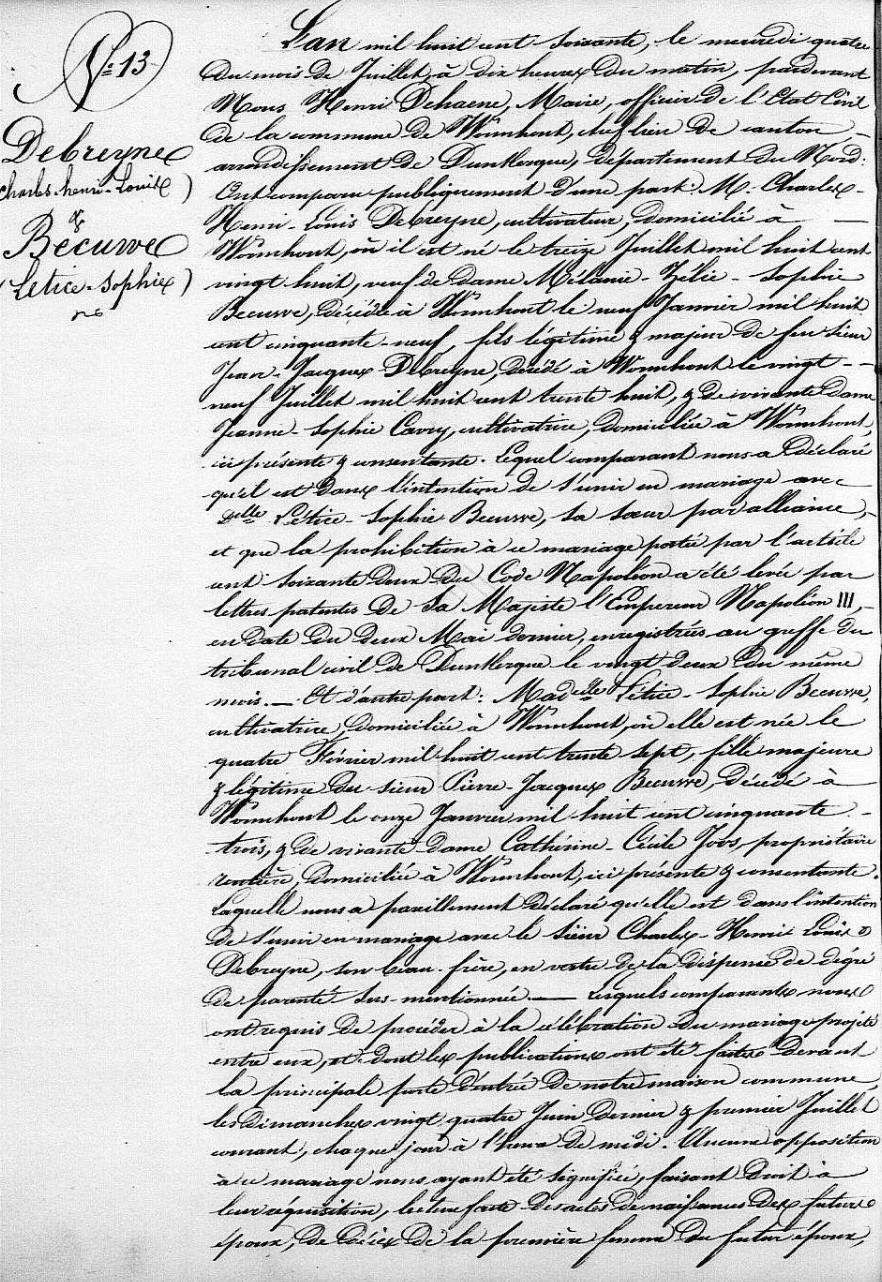 N° 13
Debreyne
(charles-henri-Louis)
&
Becuwe
(Letice-Sophie)
L'an mil huit cent soixante, le mercredi quatre
du mois de Juillet, à dix heures du matin, pardevant
Nous Henri Dehaene, Maire, officier de l'Etat Civil
de la commune de Wormhout, chef lieu de canton,
arrondissement de Dunkerque, département du Nord:
Ont comparu publiquement d'une part: M. Charles-
Henri-Louis Debreyne, cultivateur, domicilié à
Wormhout, où il est né le treize Juillet mil huit cent
vingt huit, veuf de dame Mélanie-Zélie-Sophie
Becuwe, décédée à Wormhout le neuf Janvier mil huit
cent cinquante-neuf, fils légitime & majeur de feu sieur
Jean-Jacques Debreyne, décédé à Wormhout le vingt-
neuf Juillet mil huit cent trente huit, & de vivante dame
Jeanne-Sophie Cavry, cultivatrice, domiciliée à Wormhout,
ici présente & consentante. Lequel comparant nous a déclaré
qu'il est dans l'intention de s'unir en mariage avec
Delle Létice-Sophie Becuwe, sa sœur par alliance,
et que la prohibition à ce mariage portée par l'article
cent soixante deux du Code Napoléon a été levée par
lettres patentes de Sa Majesté l'Empereur Napoléon III,
en date du deux Mai dernier, enregistrées au greffe du
tribunal civil de Dunkerque le vingt deux du même
mois. — Et d'autre part: Madelle Létice-Sophie Becuwe,
cultivatrice, domiciliée à Wormhout, où elle est née le
quatre Février mil huit cent trente sept, fille majeure
& légitime du sieur Pierre-Jacques Becuwe, décédé à
Wormhout le onze Janvier mil huit cent cinquante
trois, & de vivante dame Cathérine-Cécile Joos, propriétaire
rentière, domiciliée à Wormhout, ici présente & consentante.
Laquelle nous a pareillement déclaré qu'elle est dans l'intention
de s'unir en mariage avec le sieur Charles-Henri-Louis
Debreyne, son beau-frère, en vertu de la dispense de dégré
de parenté sus-mentionnée. — Lesquels comparants nous
ont requis de procéder à la célébration du mariage projeté
entre eux, et dont les publications ont été faites devant
la principale porte d'entrée de notre maison commune,
les dimanches vingt quatre Juin dernier & premier Juillet
courant, chaque jour à l'heure de midi. Aucune opposition
à ce mariage nous ayant été signifiée, faisant droit à
leur réquisition, lecture faite des actes de naissances des futurs
époux, de décès de la première femme du futur époux,